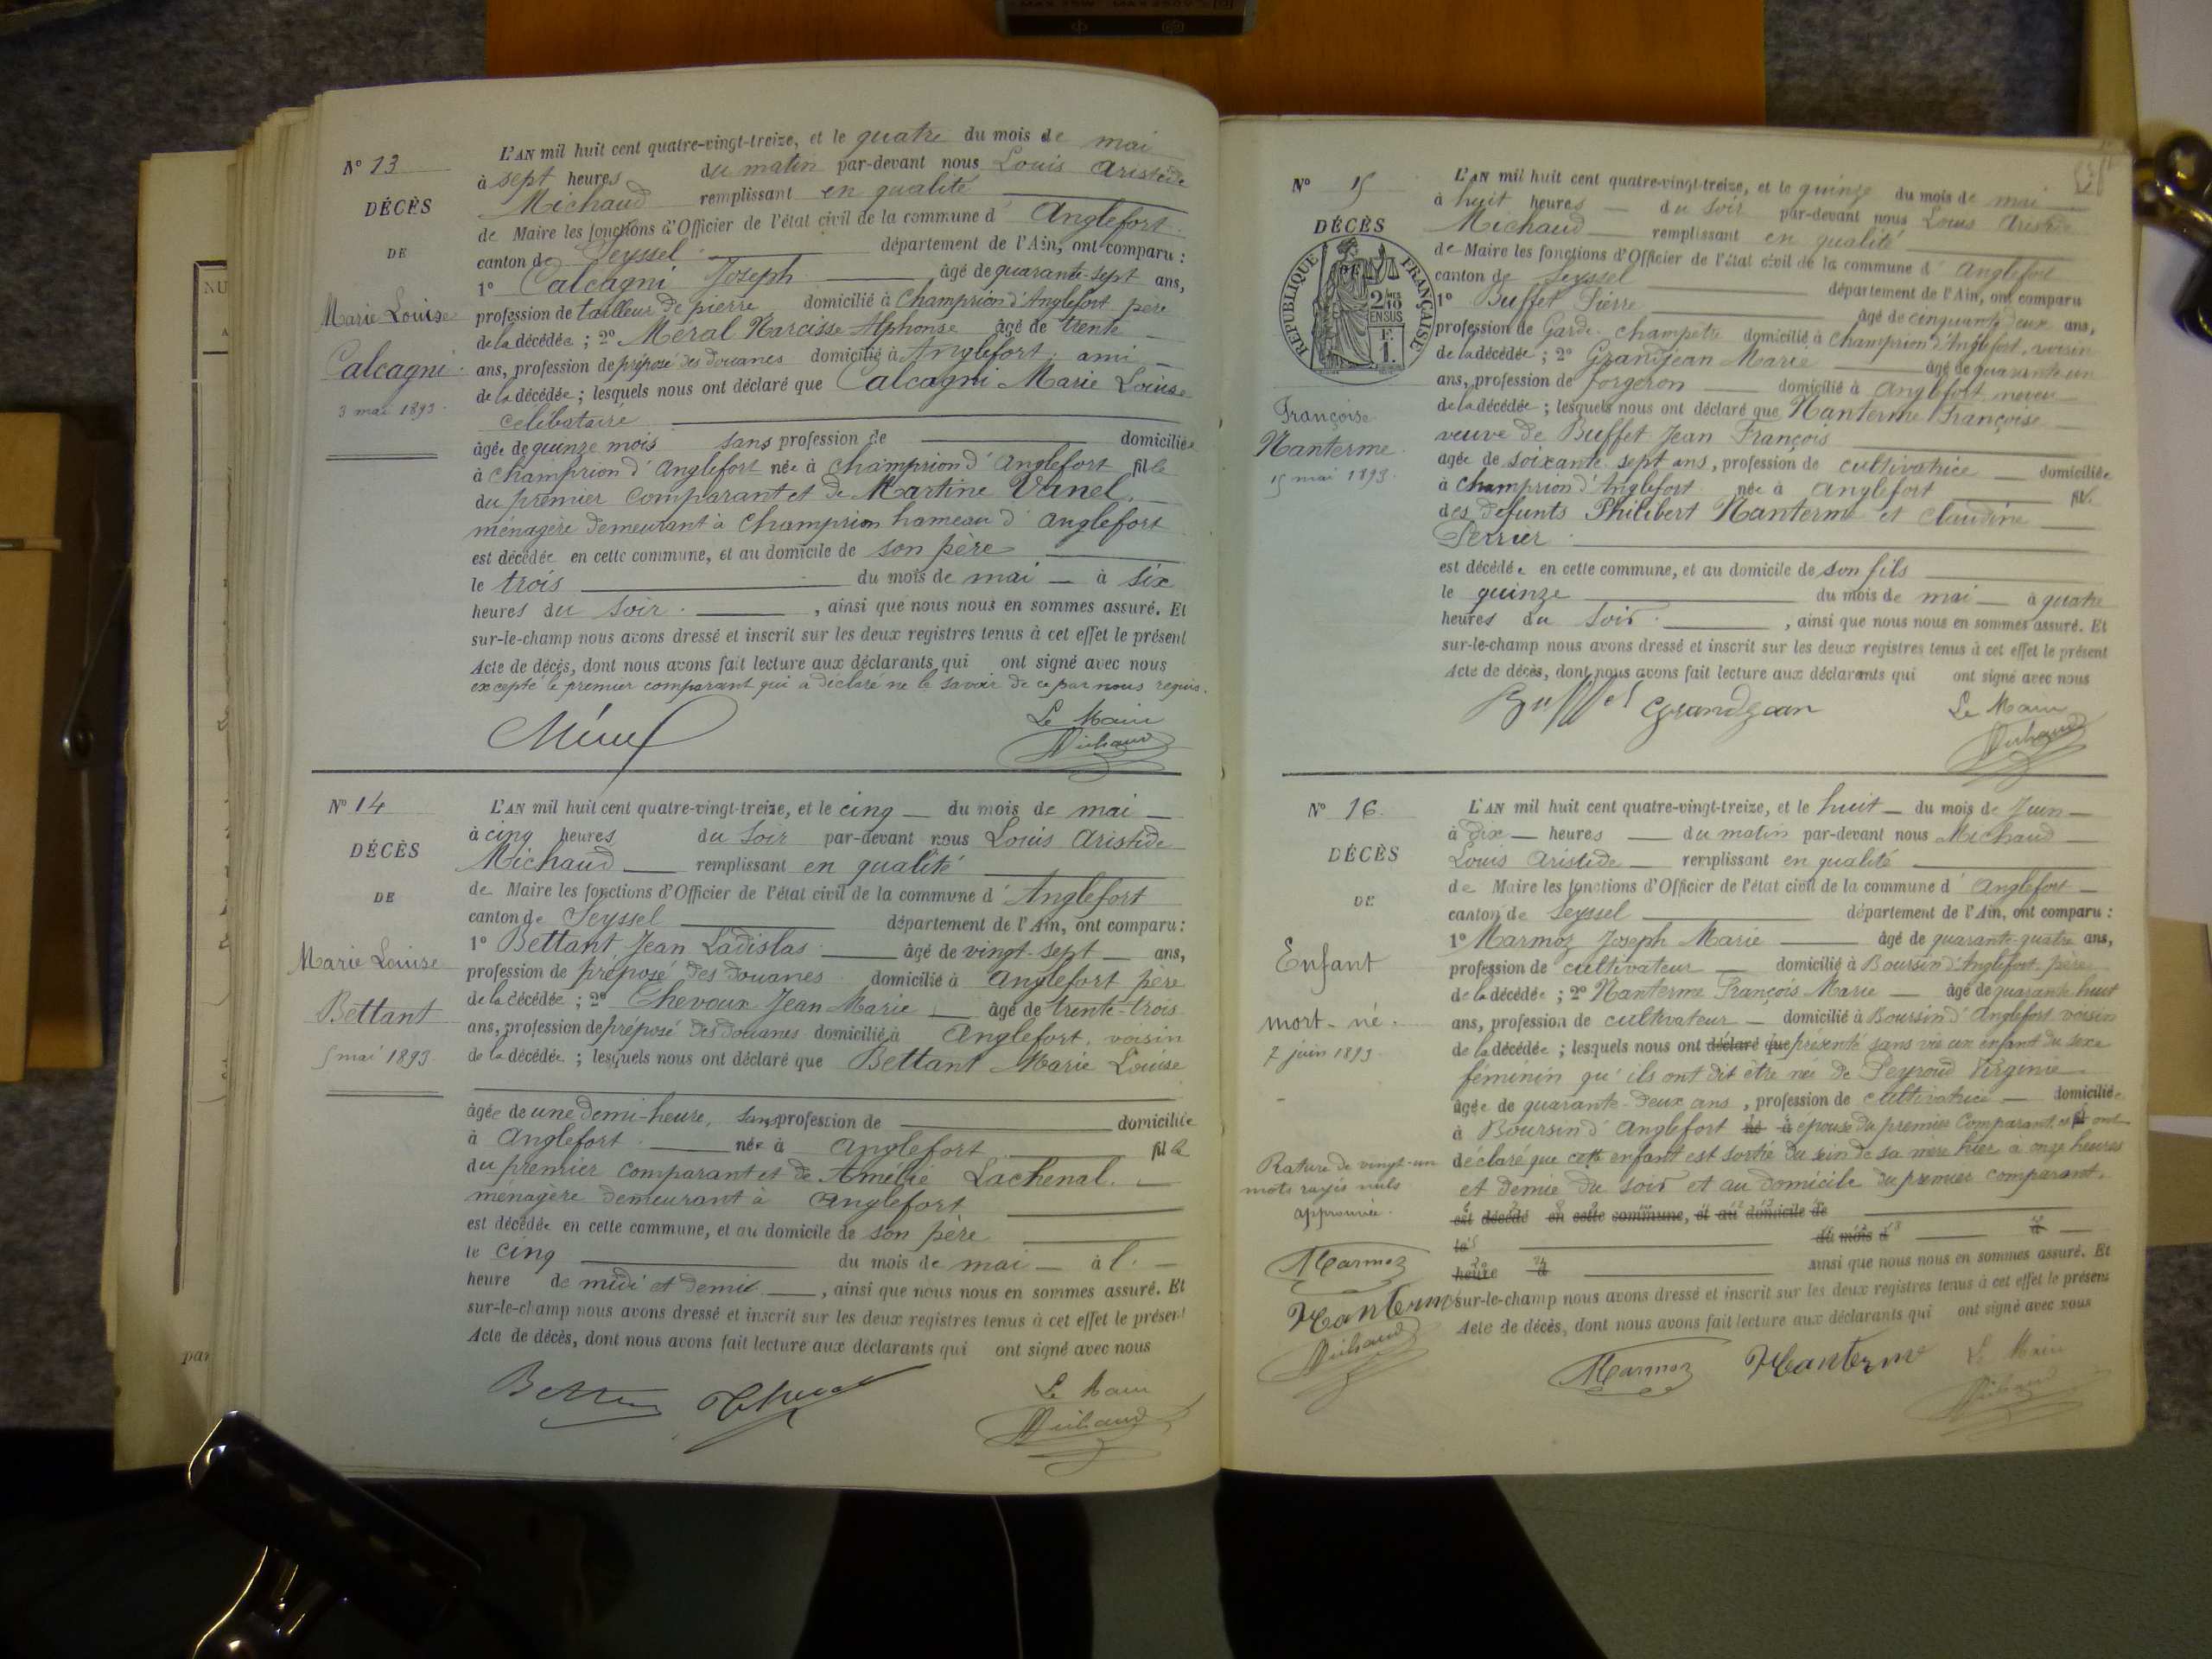 N° 13
DÉCÈS
DE
Marie Louise
Calcagni
3 mai 1893.
L'AN mil huit cent quatre-vingt-treize, et le quatre du mois de mai
à sept heures du matin par-devant nous Louis Aristide
Michaud remplissant en qualité
de Maire les fonctions d'Officier de l'état civil de la commune d'Anglefort
canton de Seyssel département de l'Ain, ont comparu :
1° Calcagni Joseph âgé de quarante-sept ans,
profession de tailleur de pierre domicilié à Champrion d'Anglefort père
de la décédée ; 2° Méral Narcisse Alphonse âgé de trente
ans, profession de préposé des douanes domicilié à Anglefort, ami
de la décédée ; lesquels nous ont déclaré que Calcagni Marie Louise
célibataire
âgée de quinze mois sans profession de domiciliée
à Champrion d'Anglefort née à Champrion d'Anglefort fille
du premier comparant et de Martine Vanel,
ménagère demeurant à Champrion hameau d'Anglefort
est décédée en cette commune, et au domicile de son père
le trois du mois de mai à six
heures du soir, ainsi que nous nous en sommes assuré. Et
sur-le-champ nous avons dressé et inscrit sur les deux registres tenus à cet effet le présent
Acte de décès, dont nous avons fait lecture aux déclarants qui ont signé avec nous
excepté le premier comparant qui a déclaré ne le savoir de ce par nous requis.
Le Maire
Michaud
N° 14
DÉCÈS
DE
Marie Louise
Bettant
5 mai 1893.
L'AN mil huit cent quatre-vingt-treize, et le cinq du mois de mai
à cinq heures du soir par-devant nous Louis Aristide
Michaud remplissant en qualité
de Maire les fonctions d'Officier de l'état civil de la commune d'Anglefort
canton de Seyssel département de l'Ain, ont comparu :
1° Bettant Jean Ladislas âgé de vingt-sept ans,
profession de préposé des douanes domicilié à Anglefort père
de la décédée ; 2° Chevoux Jean Marie âgé de trente-trois
ans, profession de préposé des douanes domicilié à Anglefort, voisin
de la décédée ; lesquels nous ont déclaré que Bettant Marie Louise
âgée de une demi-heure, sans profession de domiciliée
à Anglefort née à Anglefort fille
du premier comparant et de Amélie Lachenal,
ménagère demeurant à Anglefort
est décédée en cette commune, et au domicile de son père
le cinq du mois de mai à l'
heure de midi et demie, ainsi que nous nous en sommes assuré. Et
sur-le-champ nous avons dressé et inscrit sur les deux registres tenus à cet effet le présent
Acte de décès, dont nous avons fait lecture aux déclarants qui ont signé avec nous
Le Maire
Michaud
N° 15
DÉCÈS
RÉPUBLIQUE FRANÇAISE
2/10 EN SUS
F. 1.
Françoise
Nanterme
15 mai 1893.
L'AN mil huit cent quatre-vingt-treize, et le quinze du mois de mai
à huit heures du soir par-devant nous Louis Aristide
Michaud remplissant en qualité
de Maire les fonctions d'Officier de l'état civil de la commune d'Anglefort
canton de Seyssel département de l'Ain, ont comparu
1° Buffet Pierre âgé de cinquante deux ans,
profession de Garde-champetre domicilié à Champrion d'Anglefort, voisin
de la décédée ; 2° Grandjean Marie âgé de quarante un
ans, profession de forgeron domicilié à Anglefort neveu
de la décédée ; lesquels nous ont déclaré que Nanterme Françoise
veuve de Buffet Jean François
agée de soixante-sept ans, profession de cultivatrice domiciliée
à Champrion d'Anglefort née à Anglefort fille
des défunts Philibert Nanterme et Claudine
Perrier
est décédée en cette commune, et au domicile de son fils
le quinze du mois de mai à quatre
heures du soir, ainsi que nous nous en sommes assuré. Et
sur-le-champ nous avons dressé et inscrit sur les deux registres tenus à cet effet le présent
Acte de décès, dont nous avons fait lecture aux déclarants qui ont signé avec nous
Buffet Grandjean Le Maire
Michaud
N° 16
DÉCÈS
DE
Enfant
mort-né.
7 juin 1893.
Rature de vingt-un
mots rayés nuls
approuvée.
Marmoz
Nanterme
Michaud
L'AN mil huit cent quatre-vingt-treize, et le huit du mois de Juin
à dix heures du matin par-devant nous Michaud
Louis Aristide remplissant en qualité
de Maire les fonctions d'Officier de l'état civil de la commune d'Anglefort
canton de Seyssel département de l'Ain, ont comparu :
1° Marmoz Joseph Marie âgé de quarante-quatre ans,
profession de cultivateur domicilié à Boursin d'Anglefort, père
de la décédée ; 2° Nanterme François Marie âgé de quarante huit
ans, profession de cultivateur domicilié à Boursin d'Anglefort voisin
de la décédée ; lesquels nous ont déclaré que présenté sans vie un enfant du sexe
féminin qu'ils ont dit être née de Peyroud Virginie
âgée de quarante-deux ans, profession de cultivatrice domiciliée
à Boursin d'Anglefort née à épouse du premier comparant, et ont
déclaré que cette enfant est sortie du sein de sa mère hier à onze heures
et demie du soir et au domicile du premier comparant.
est décédé en cette commune, et au domicile de
le du mois d à
heure d ainsi que nous nous en sommes assuré. Et
sur-le-champ nous avons dressé et inscrit sur les deux registres tenus à cet effet le présent
Acte de décès, dont nous avons fait lecture aux déclarants qui ont signé avec nous
Marmoz Nanterme Le Maire
Michaud